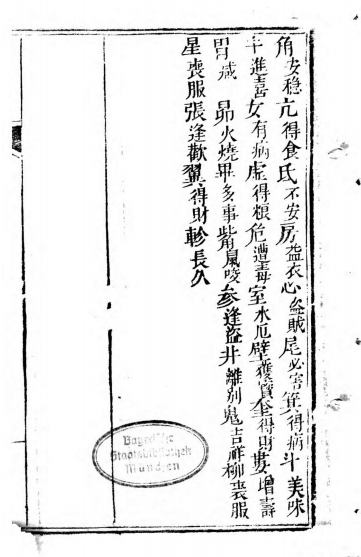 角安穩亢得食氐不安房益衣心盜賊尾必害箕得病斗美味
牛進喜女有病虛得粮危遭毒室水厄壁獲寶奎得財婁增壽
胃减 昴火燒畢多事觜鼠咬参逢盜井離别鬼吉祥柳喪服
星喪服張逢歡翼得財軫長久
Bayerische
Staatsbibliothek
München